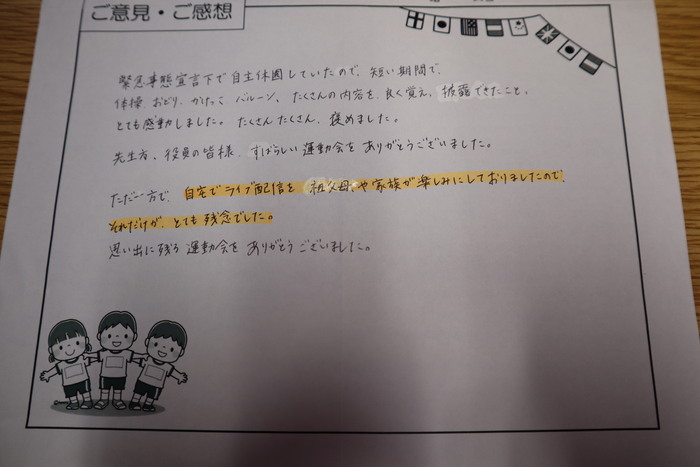 ご意見・ご感想
緊急事態宣言下で自主休園していたので、短い期間で、
体操、おどり、かけっこ、バルーン、たくさんの内容を良く覚え、披露できたこと、
とても感動しました。たくさんたくさん、褒めました。
先生方、役員の皆様、すばらしい運動会をありがとうございました。
ただ一方で、自宅でライブ配信を祖父母や家族が楽しみにしておりましたので、
それだけが、とても残念でした。
思い出に残る運動会をありがとうございました。